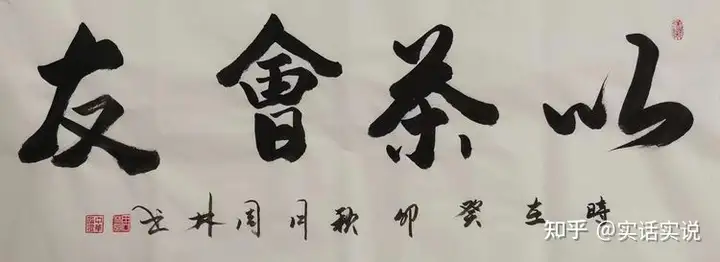 以茶會友
時在癸卯秋月周林书
知乎 @实话实说